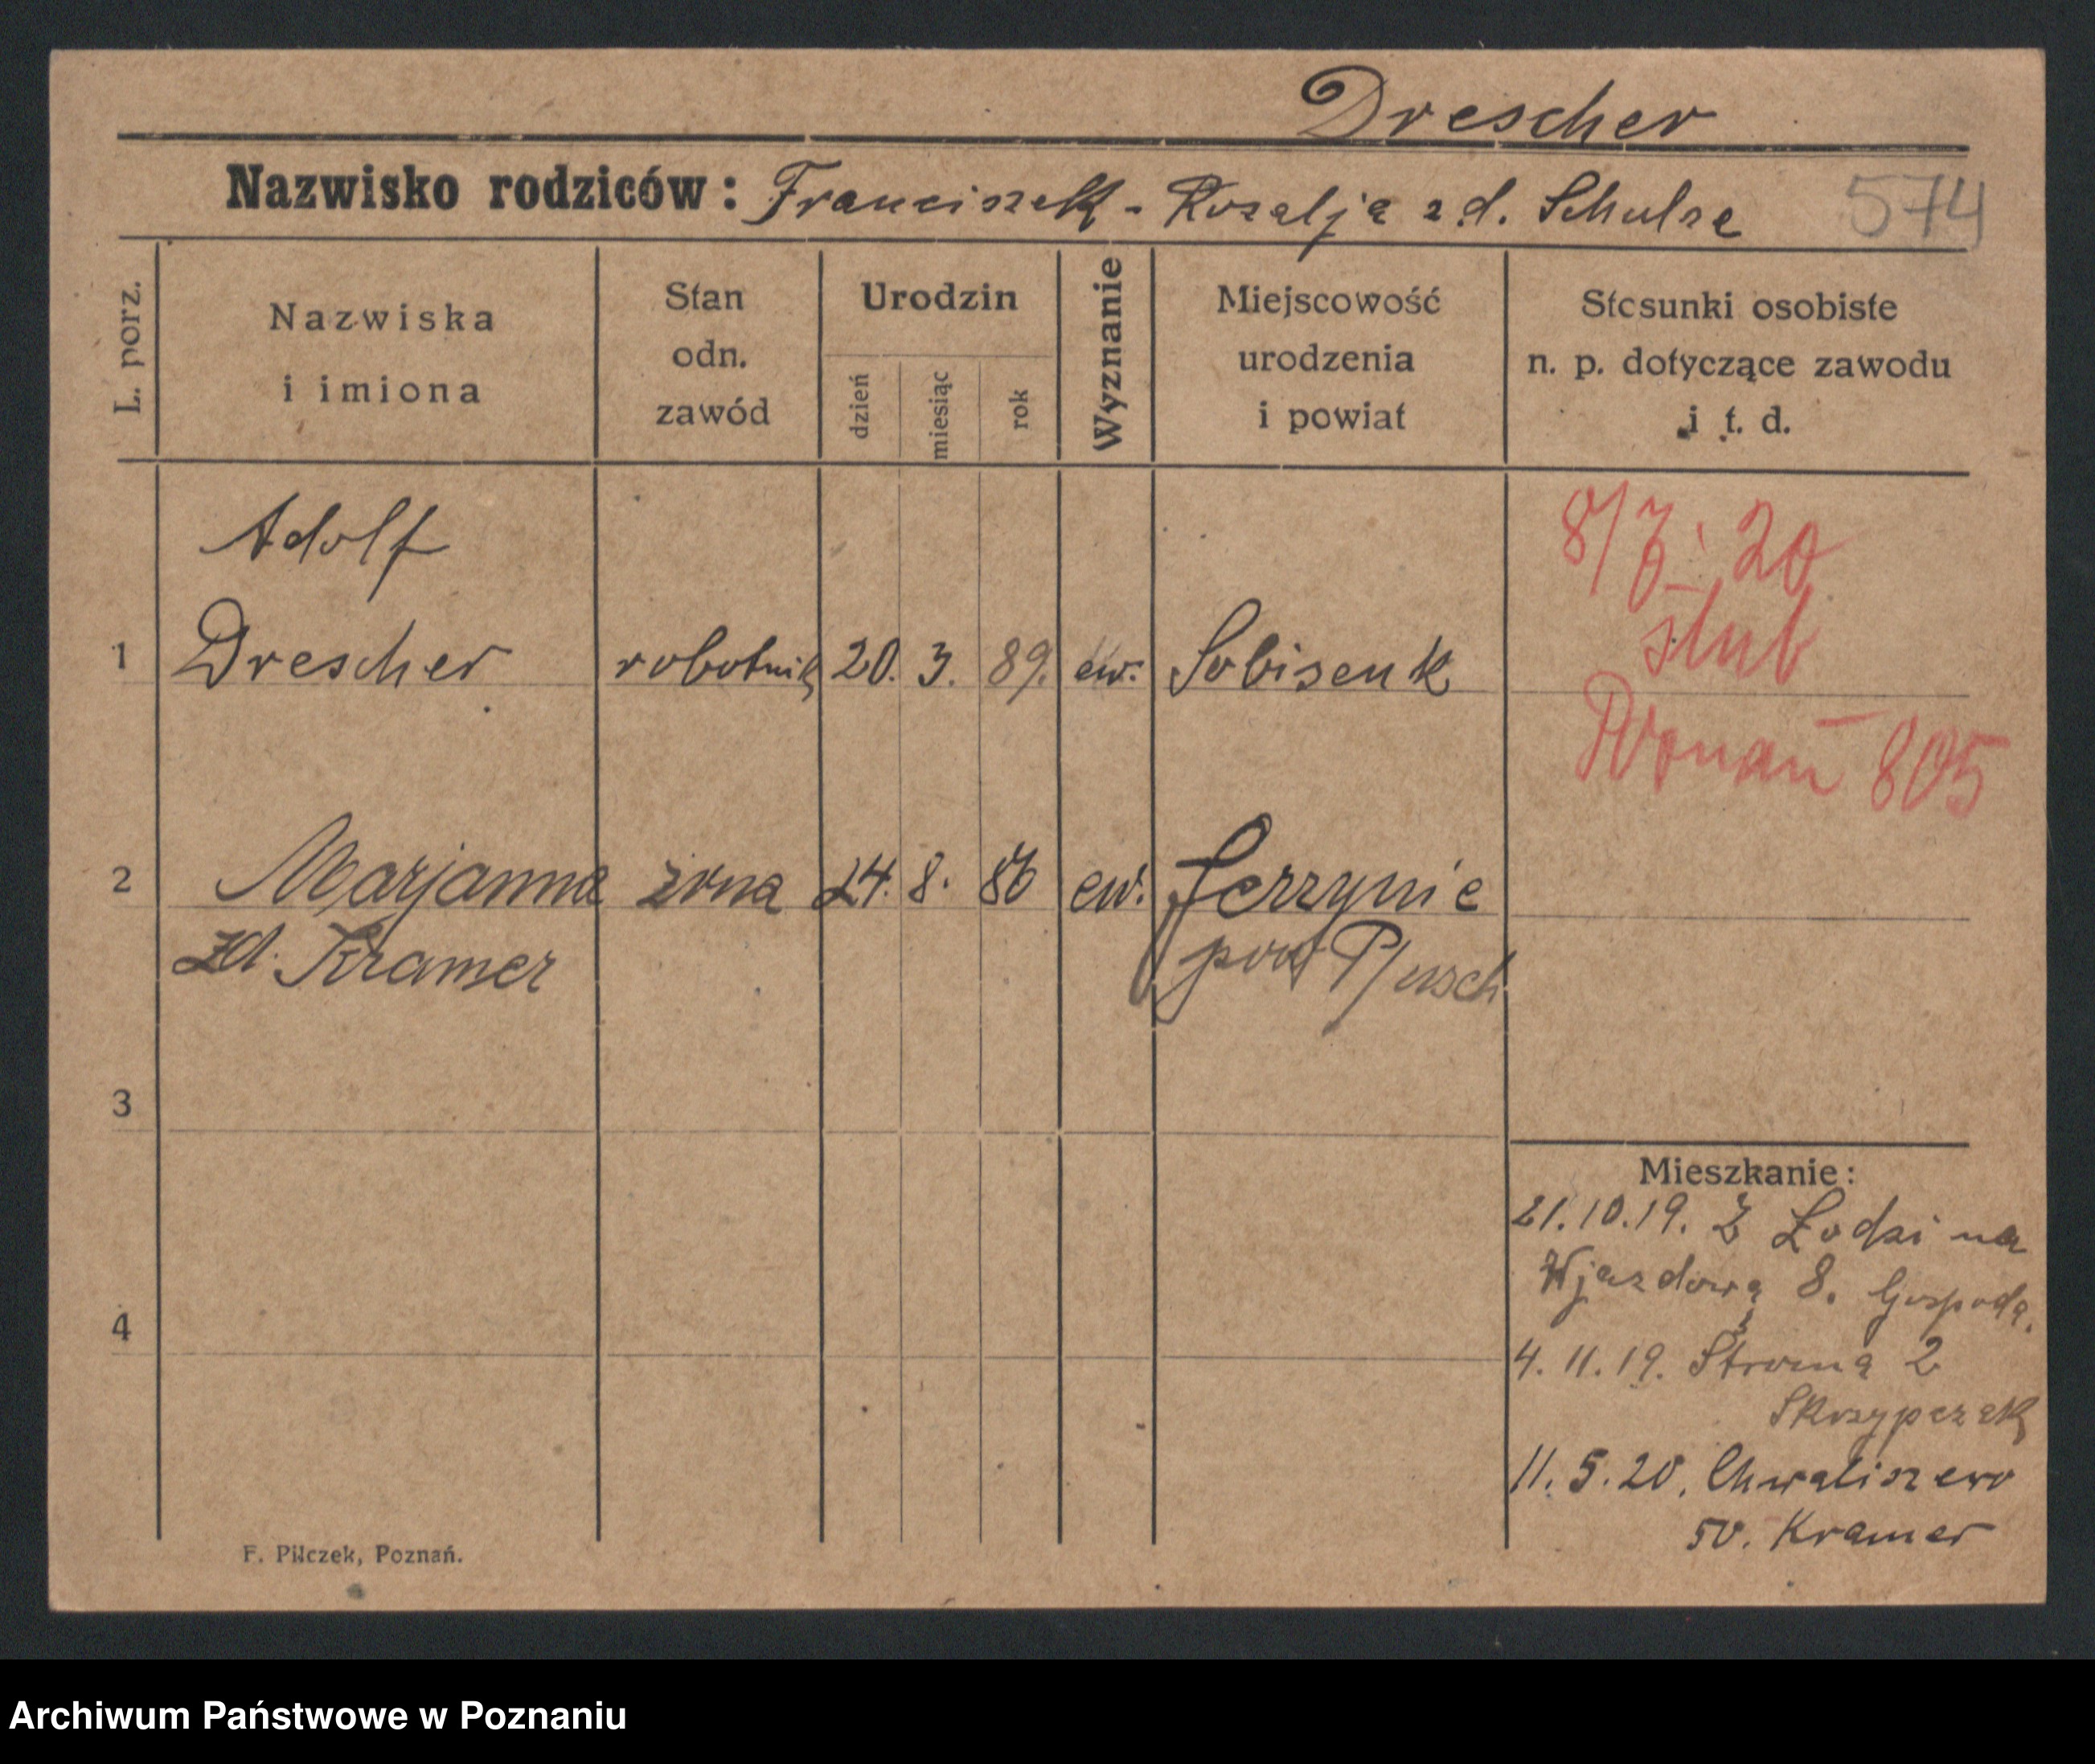 Drescher
Nazwisko rodziców: Franciszek - Rozalja z d. Schulze 574
L. porz.
Nazwiska
i imiona
Stan
odn.
zawód
Urodzin
dzień
miesiąc
rok
Wyznanie
Miejscowość
urodzenia
i powiat
Stosunki osobiste
n. p. dotyczące zawodu
i t. d.
Adolf
1 Drescher robotnik 20. 3. 89. ew. Sobisenk
8/7. 20
ślub
Poznań 805
2 Marjanna żona 24. 8. 86 ew. Jerzynie
zd. Kramer pow
3
4
Mieszkanie:
21.10.19. Z Łodzi na
Wjazdową 8. Gospodą.
4. 11. 19. Stromą 2
Skrzypczak
11. 5. 20. Chwaliszewo
50. Kramer
F. Pilczek, Poznań.
Archiwum Państwowe w Poznaniu